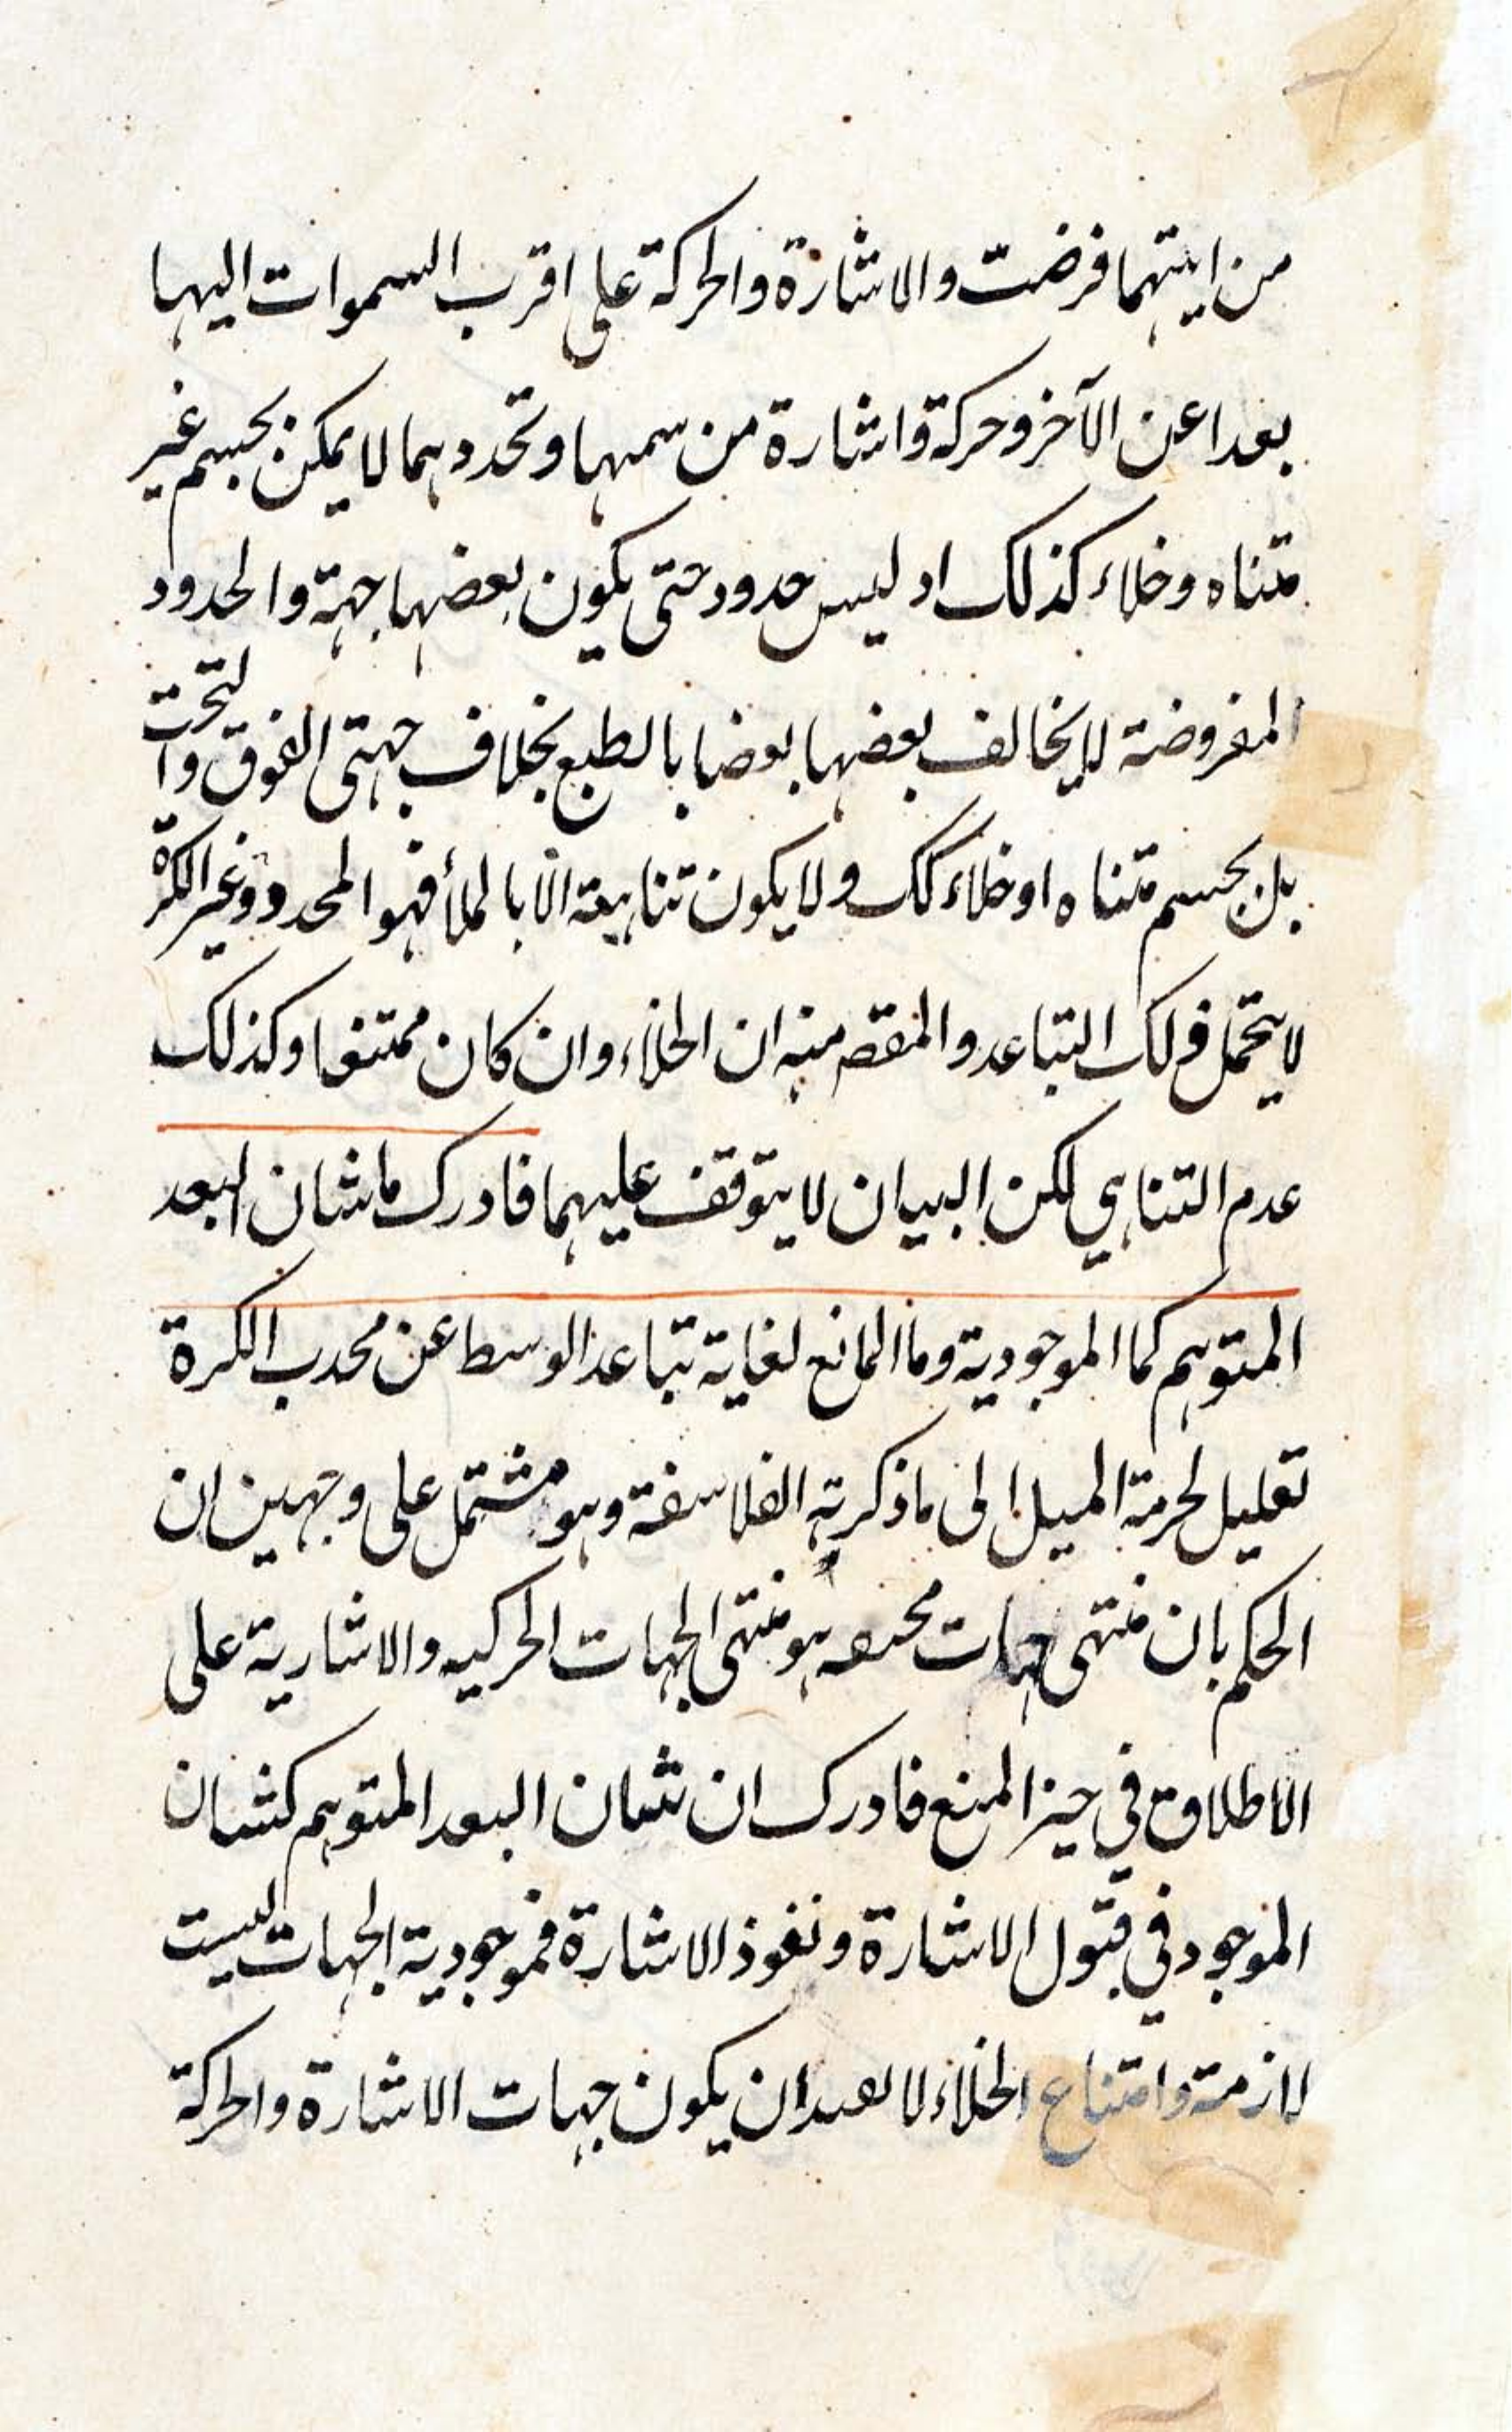 من ايتهما فرضت والاشارة والحركة على اقرب السموات اليها
بعدا عن الآخر وحركة واشارة من سمتها وتحددهما لا يمكن بجسم غير
متناه وخلاء كذلك اد ليس حدود حتى يكون بعضها جهة والحدود
المفروضة لا يخالف بعضها بعضا بالطبع بخلاف جهتى الفوق والتحت
بل بجسم متناه او خلاء كك ولا يكون تناهيه الا بالملأ فهو المحدد وغير الكرة
لا يتحمل ذلك التباعد والمقص منه ان الخلاء وان كان ممتنعا وكذلك
عدم التناهي لكن البيان لا يتوقف عليهما فادرك ما شان البعد
المتوهم كما الموجودية وما المانع لغاية تباعد الوسط عن محدب الكرة
تعليل لحرمة الميل الى ما ذكرته الفلاسفة وهو مشتمل على وجهين ان
الحكم بان منتهى جهات هو منتهى الجهات الحركيه والاشارية على
الاطلاق في حيز المنع فادرك ان شان البعد المتوهم كشان
الموجود في قبول الاشارة ونفوذ الاشارة فموجودية الجهات ليست
لازمة وامتناع الخلاء لا ان يكون جهات الاشارة والحركة